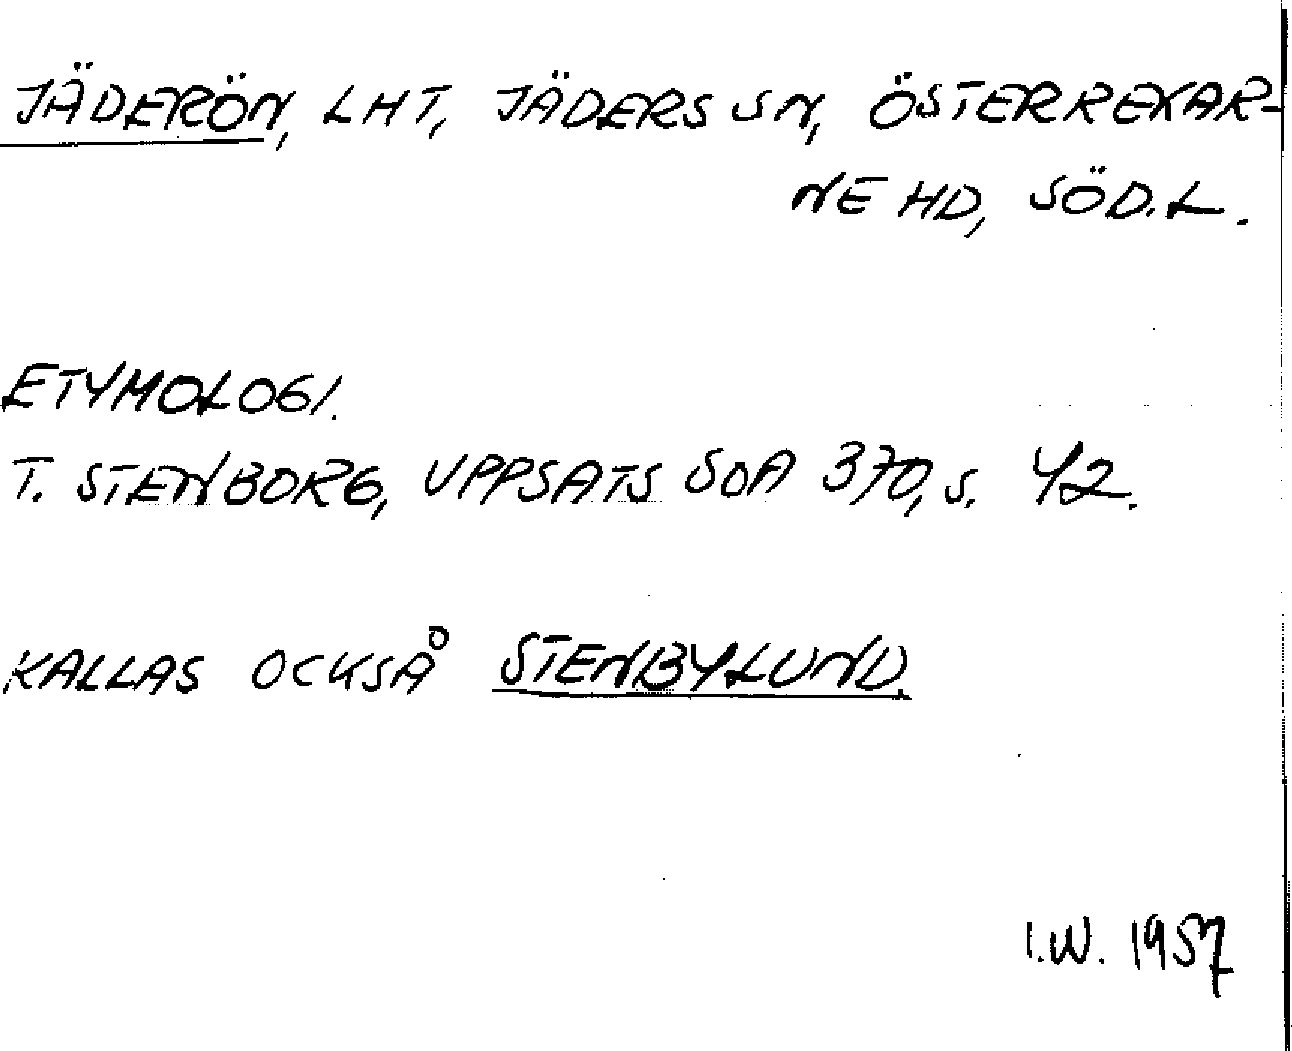 JÄDERÖN, LHT, JÄDERS SN, ÖSTERREKAR-
NE HD, SÖD.L.
ETYMOLOGI.
T. STENBORG, UPPSATS SOA 370, S. 42.
KALLAS OCKSÅ STENBYLUND.
I.W. 1957